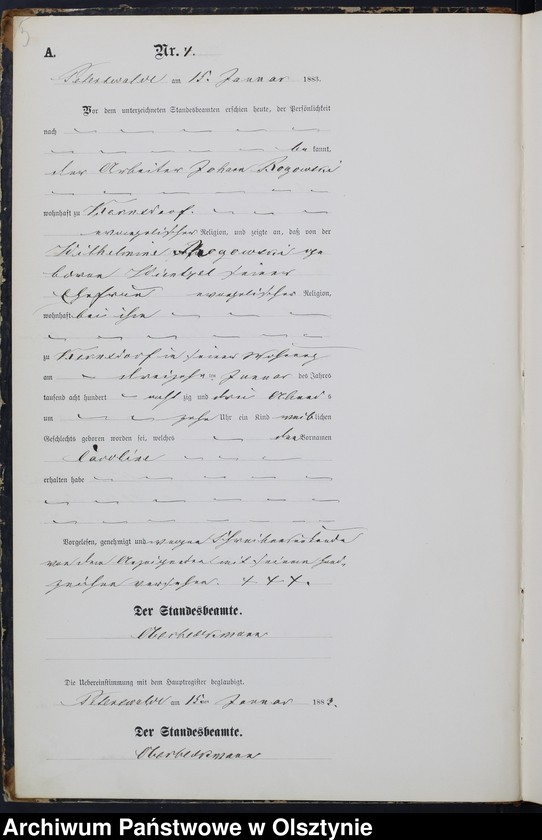 5
A. Nr. 4.
Peterswalde am 15. Januar 1883.
Vor dem unterzeichneten Standesbeamten erschien heute, der Persönlichkeit
nach
be kannt,
der Arbeiter Johann Rogowski
wohnhaft zu Kernsdorf.
evangelischer Religion, und zeigte an, daß von der
Wilhelmine Rogowski ge
borene seiner
Ehefrau evangelischer Religion,
wohnhaft bei ihm
zu Kernsdorf in seiner Wohnung
am dreizehnten Januar des Jahres
tausend acht hundert acht zig und drei Abends
um zehn Uhr ein Kind weiblichen
Geschlechts geboren worden sei, welches den Vornamen
Caroline
erhalten habe
Vorgelesen, genehmigt und wegen Schreibensunkunde
von dem Anzeigenden mit seinem Hand-
zeichen versehen. + + +.
Der Standesbeamte.
Oberbeckmann
Die Uebereinstimmung mit dem Hauptregister beglaubigt.
Peterswalde am 15ten Januar 1883.
Der Standesbeamte.
Oberbeckmann
Archiwum Państwowe w Olsztynie